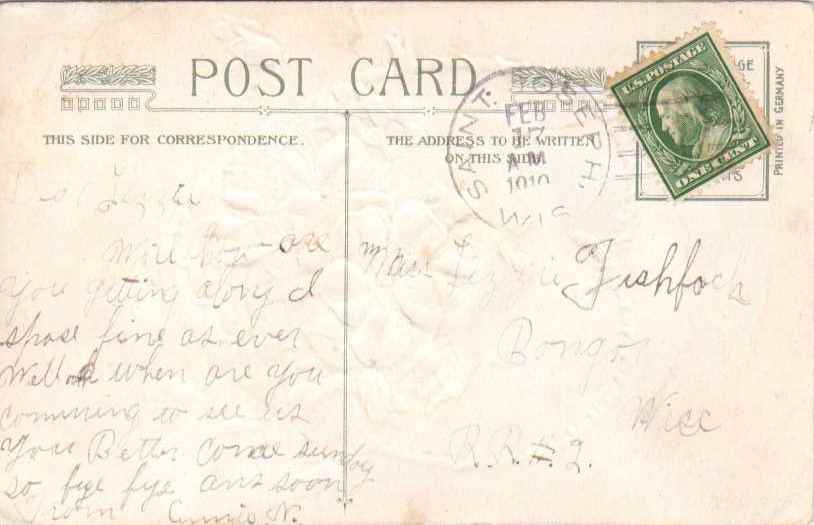 POST CARD
THIS SIDE FOR CORRESPONDENCE.
THE ADDRESS TO BE WRITTEN
ON THIS SIDE
PRINTED IN GERMANY
U.S. POSTAGE
ONE CENT
SAINT JOSEPH.
FEB
17
A.M.
1910
WIS
Lizzie
Well how are
you getting along I
spose fine as ever
Well when are you
comming to see us
you Better come sunday
so bye bye ans soon
From Annie N.
Miss Lizzie Fishfoch
Bongor
Wisc
R.R.#.2.